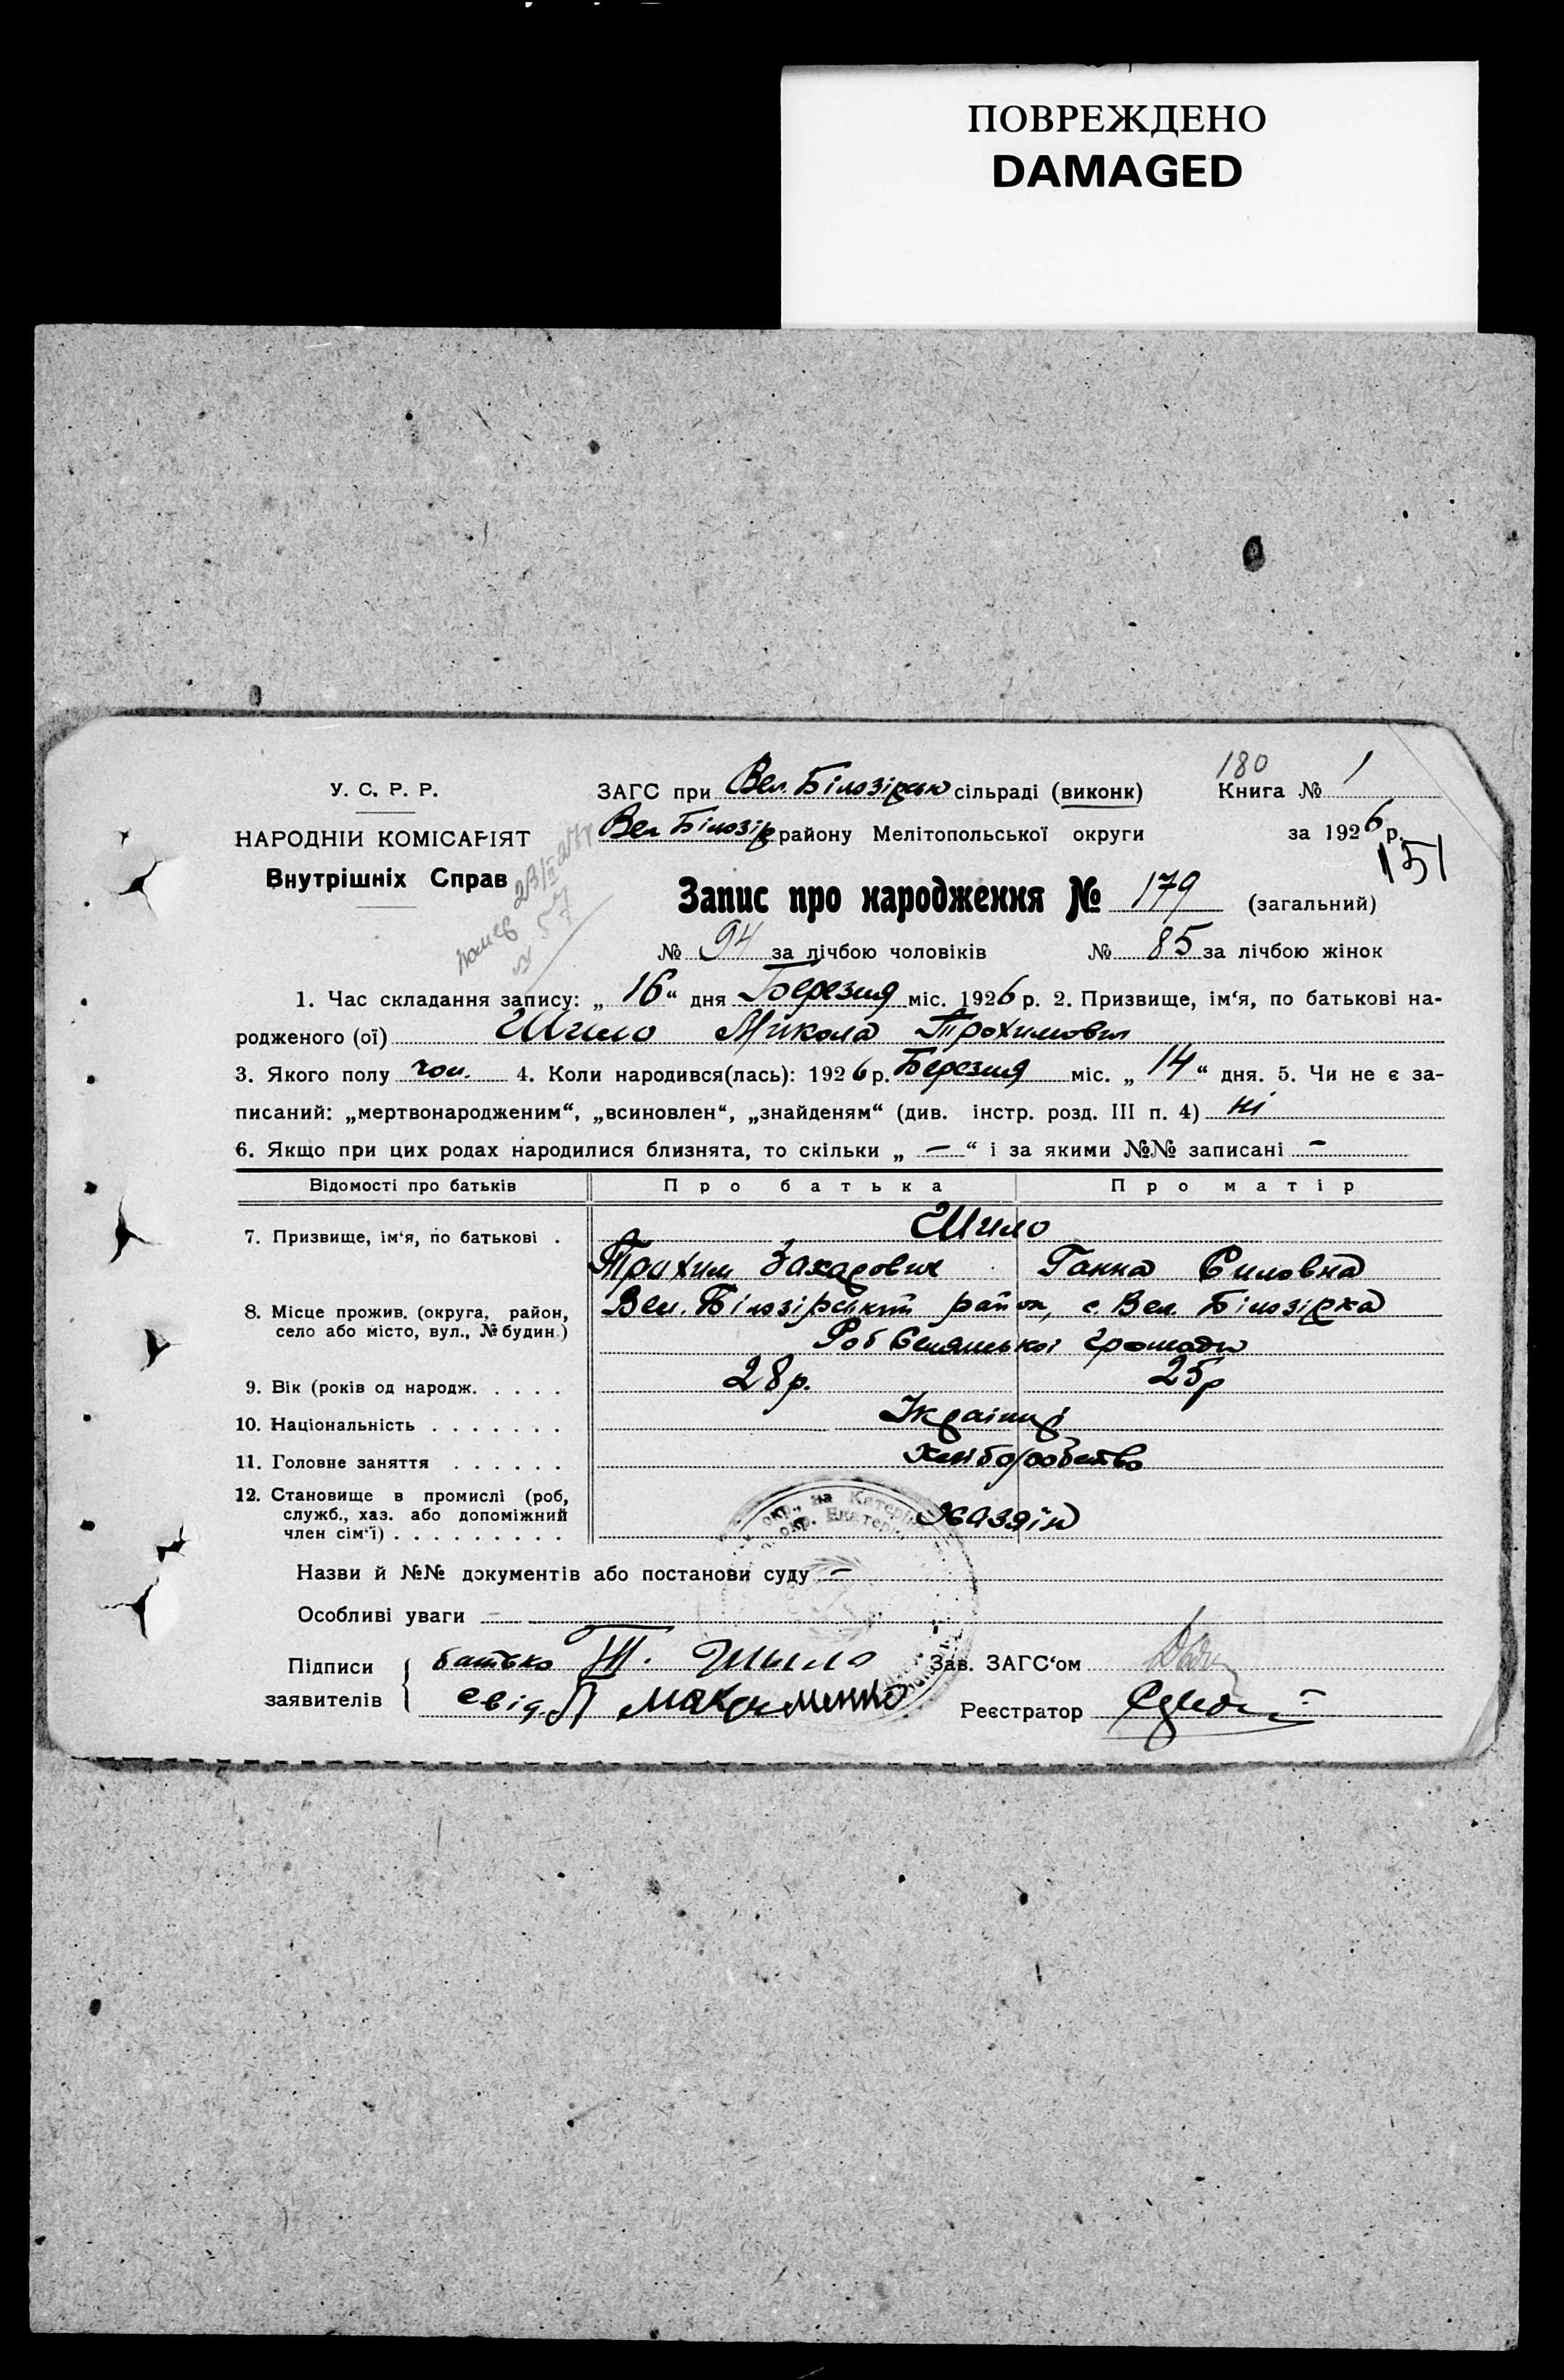 ПОВРЕЖДЕНО
DAMAGED
180
У. С. Р. Р.
ЗАГС при Вел. Білозірськ сільраді (виконк)
Книга № 1
НАРОДНІЙ КОМІСАРІЯТ
Вел Білозір району Мелітопольської округи
за 1926 р.
151
Внутрішніх Справ
помер 23/II 27р
№ 57
Запис про народження № 179 (загальний)
№ 94 за лічбою чоловіків № 85 за лічбою жінок
1. Час складання запису: „ 16 “ дня Березня міс. 1926 р. 2. Призвище, ім‘я, по батькові на-
родженого (ої) Шило Микола Трохимович
3. Якого полу чол. 4. Коли народився(лась): 1926 р. Березня міс. „ 14 “ дня. 5. Чи не є за-
писаний: „мертвонародженим“, „всиновлен“, „знайденям“ (див. інстр. розд. III п. 4) ні
6. Якщо при цих родах народилися близнята, то скільки „ — “ і за якими №№ записані —
Відомості про батьків Про батька Про матір
7. Призвище, ім‘я, по батькові . Шило
Трохим Захарович Ганна Силовна
8. Місце прожив. (округа, район, Вел. Білозірський район, с. Вел. Білозірка
село або місто, вул., № будин.)
Роб Селянської громади
9. Вік (років од народж. . . . . 28 р. 25 р
10. Національність . . . . . . . Українці
11. Головне заняття . . . . . . хліборобство
12. Становище в промислі (роб,
служб., хаз. або допоміжний
член сім‘ї) . . . . . . . . . Хазяїн
окр., на Катерин
окр. Екатери
Назви й №№ документів або постанови суду —
Особливі уваги —
Підписи
заявителів
батько Т. Шило
свід. П Максименко
Зав. ЗАГС‘ом
Реєстратор